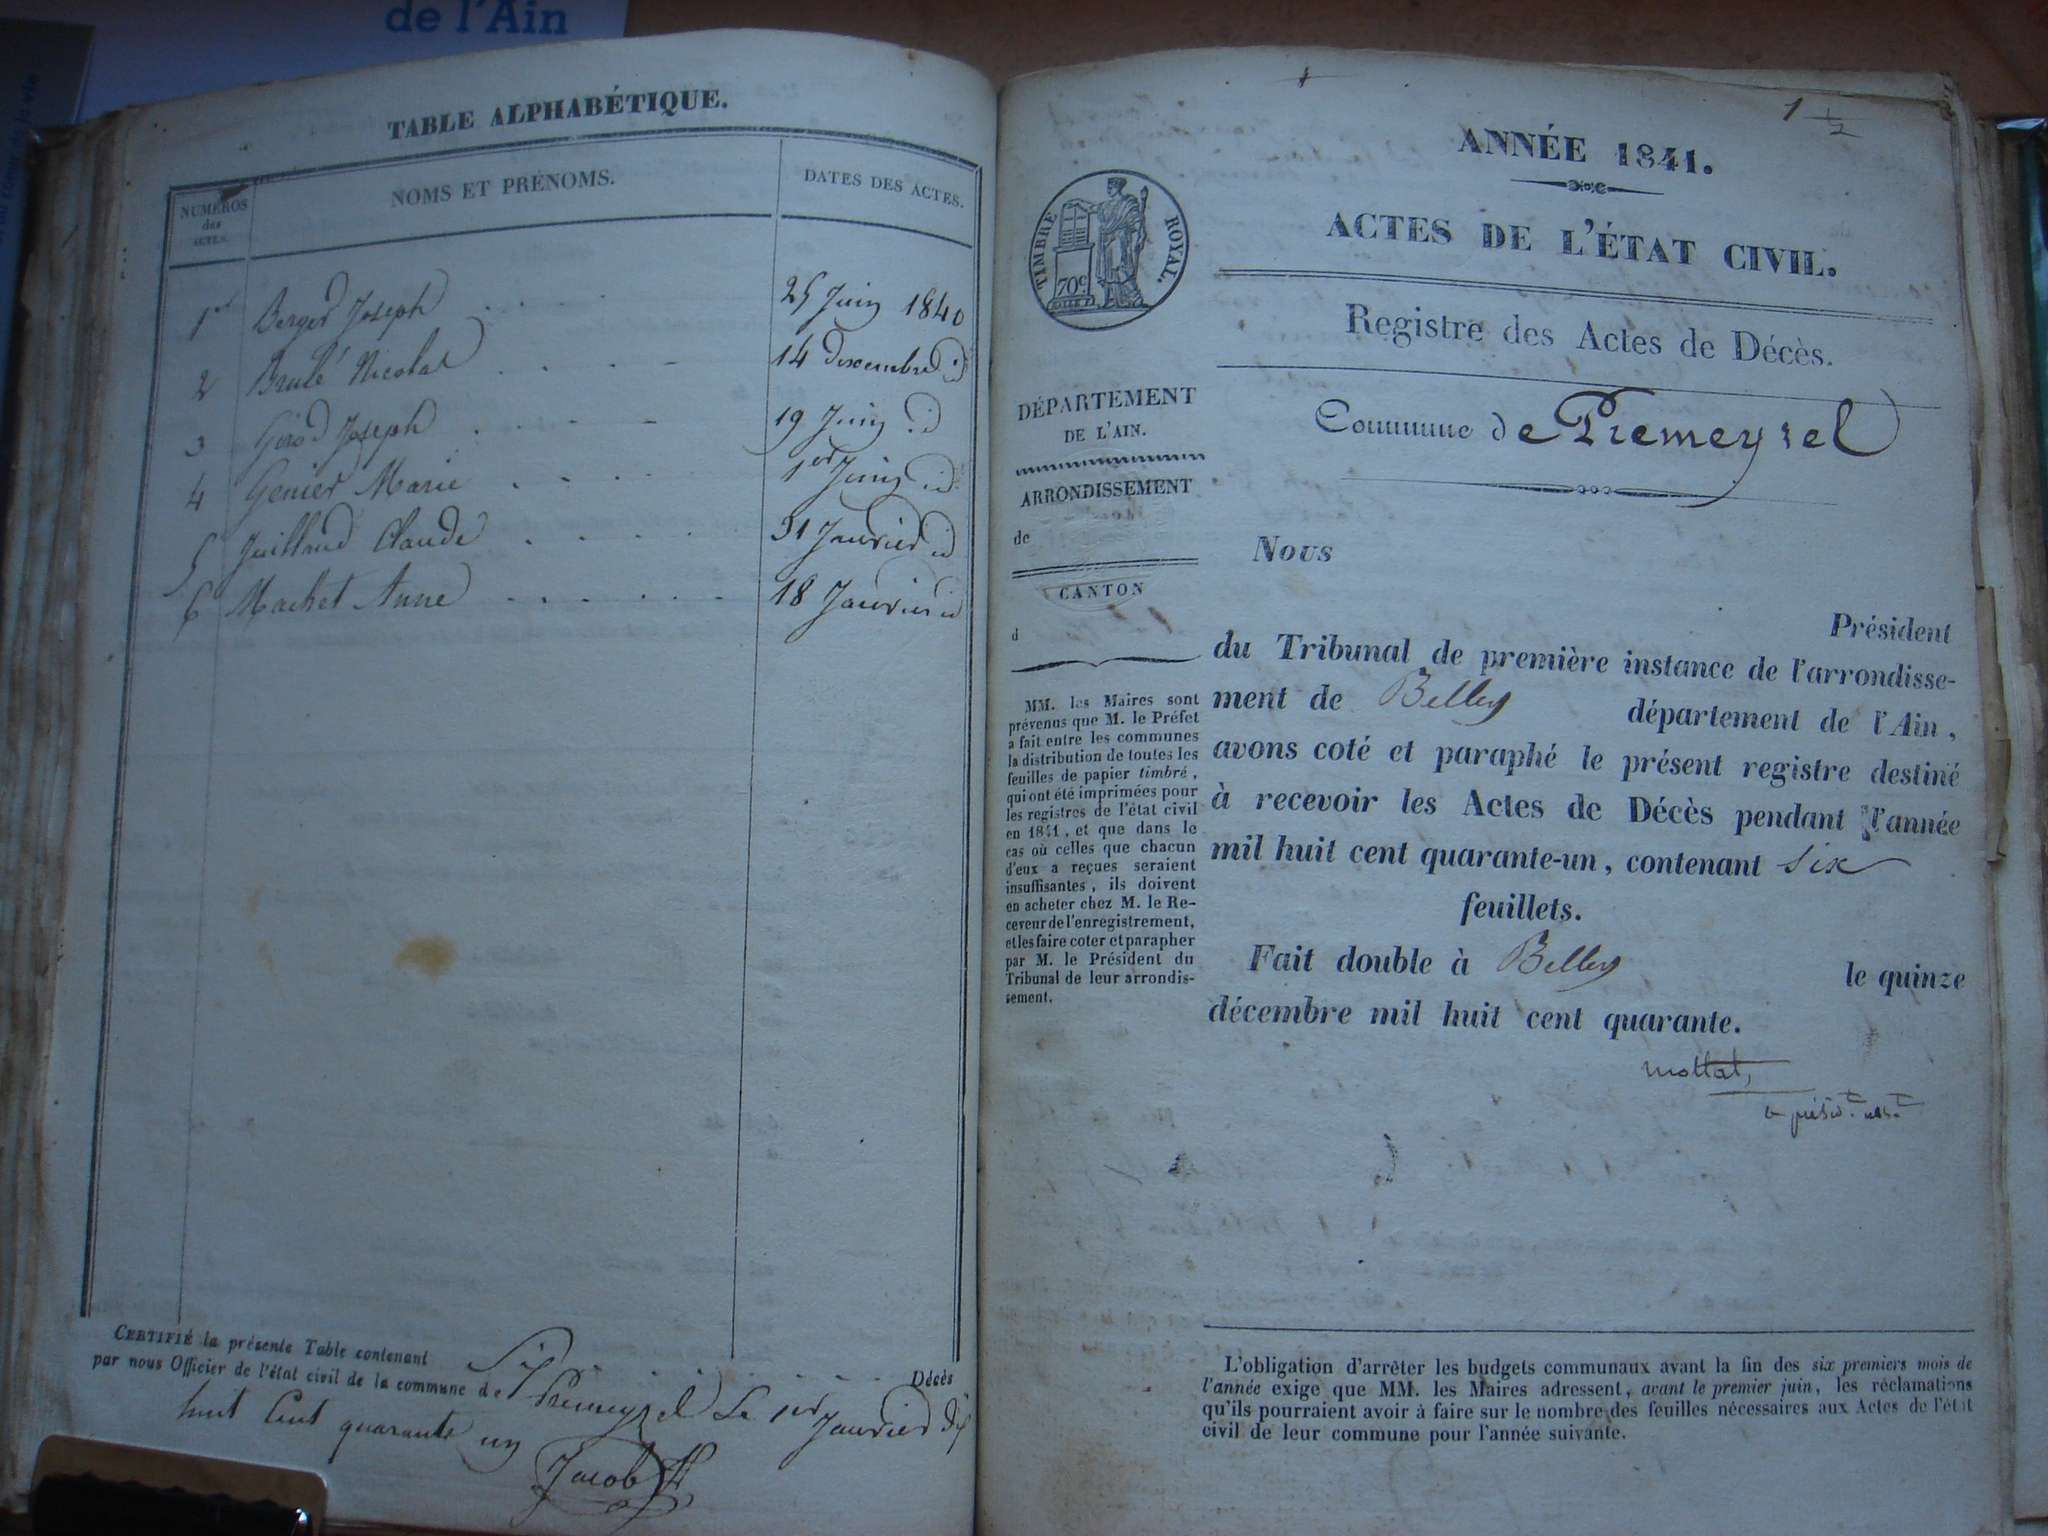 de l'Ain
TABLE ALPHABÉTIQUE.
NUMÉROS des ACTES.
NOMS ET PRÉNOMS.
DATES DES ACTES.
1er Berger Joseph 25 Juin 1840
2 Brulé Nicolas 14 décembre id
3 Girod Joseph 19 Juin id
4 Genier Marie 1er Juin id
5 Juilland Claude 31 Janvier id
6 Machet Anne 18 Janvier id
CERTIFIÉ la présente Table contenant Six Décès
par nous Officier de l'état civil de la commune de Premeyzel Le 1er Janvier dix
huit Cent quarante un
Jacob
1
ANNÉE 1841.
ACTES DE L'ÉTAT CIVIL.
TIMBRE ROYAL.
70c
Registre des Actes de Décès.
Commune de Premeyzel
DÉPARTEMENT
DE L'AIN.
ARRONDISSEMENT
de
CANTON
d
MM. les Maires sont
prévenus que M. le Préfet
a fait entre les communes
la distribution de toutes les
feuilles de papier timbré,
qui ont été imprimées pour
les registres de l'état civil
en 1841, et que dans le
cas où celles que chacun
d'eux a reçues seraient
insuffisantes, ils doivent
en acheter chez M. le Re-
ceveur de l'enregistrement,
et les faire coter et parapher
par M. le Président du
Tribunal de leur arrondis-
sement.
Nous
Président
du Tribunal de première instance de l'arrondisse-
ment de Belley département de l'Ain,
avons coté et paraphé le présent registre destiné
à recevoir les Actes de Décès pendant l'année
mil huit cent quarante-un, contenant six
feuillets.
Fait double à Belley le quinze
décembre mil huit cent quarante.
Mottat,
L'obligation d'arrêter les budgets communaux avant la fin des six premiers mois de
l'année exige que MM. les Maires adressent, avant le premier juin, les réclamations
qu'ils pourraient avoir à faire sur le nombre des feuilles nécessaires aux Actes de l'état
civil de leur commune pour l'année suivante.